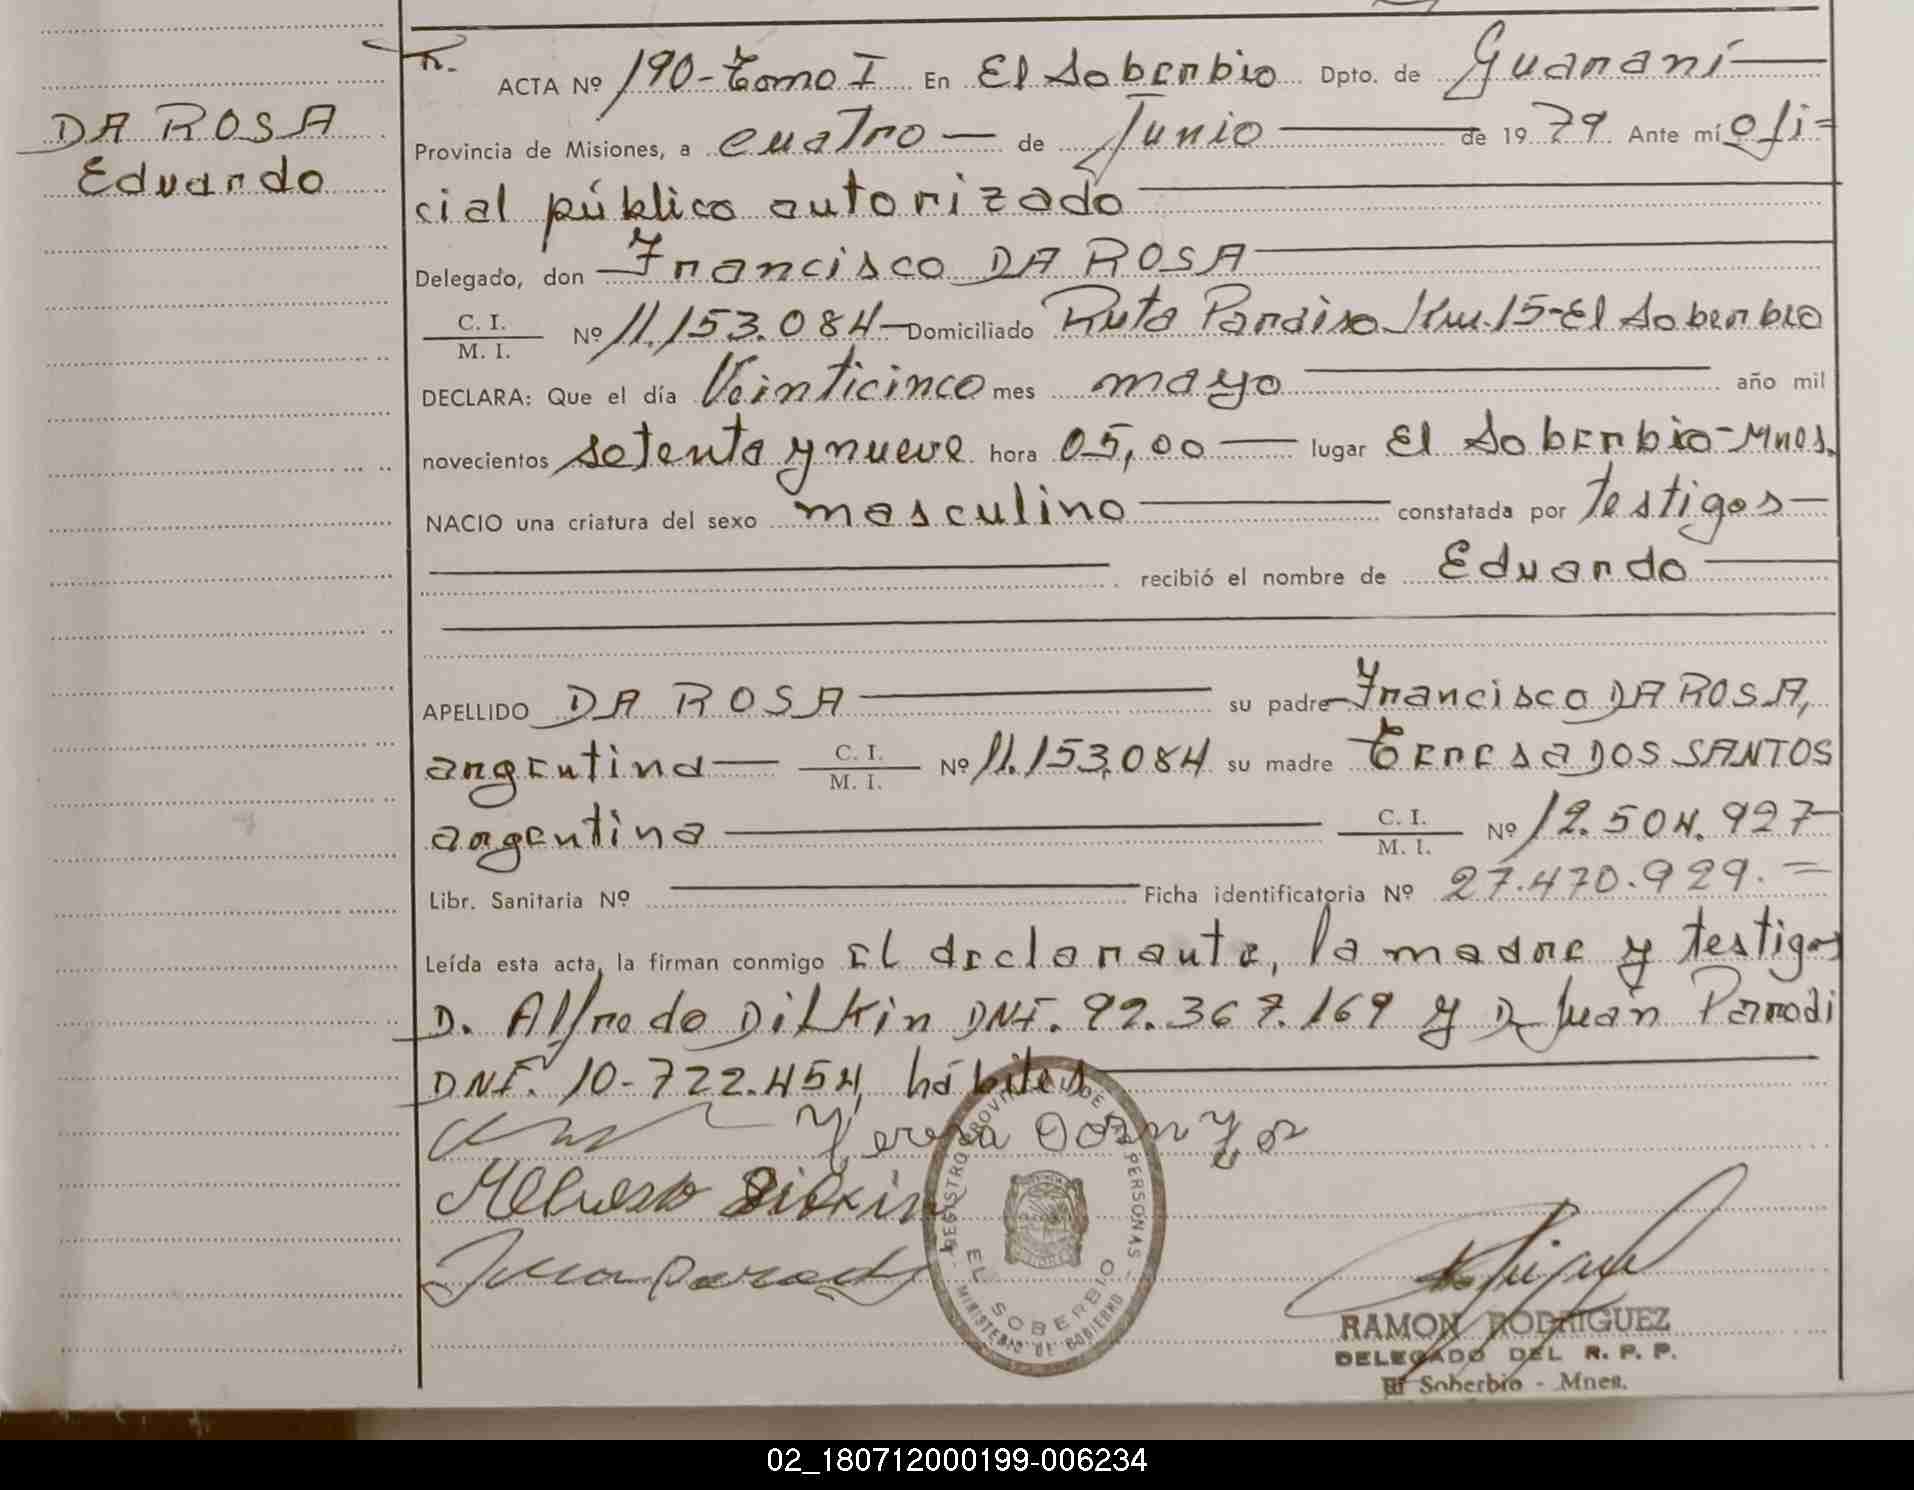 DA ROSA
Eduardo
ACTA Nº 190-Tomo I En El Soberbio Dpto. de Guaraní
Provincia de Misiones, a cuatro de Junio de 1979 Ante mí ofi-
cial público autorizado
Delegado, don Francisco DA ROSA
C. I.
M. I. Nº 11.153.084 Domiciliado Ruta Paraiso Km.15-El Soberbio
DECLARA: Que el día Veinticinco mes mayo año mil
novecientos setenta y nueve hora 05,00 lugar El Soberbio-Mnes.
NACIO una criatura del sexo masculino constatada por testigos
recibió el nombre de Eduardo
APELLIDO DA ROSA su padre Francisco DA ROSA,
argentino C. I. M. I. Nº 11.153.084 su madre Teresa DOS SANTOS
argentina C. I. M. I. Nº 12.504.927
Libr. Sanitaria Nº Ficha identificatoria Nº 27.470.929.=
Leída esta acta, la firman conmigo El declarante, la madre y testigos
D. Alfredo Dilkin DNI. 92.367.169 y D. Juan Parrodi
DNI. 10-722.454, hábiles
Teresa
Dilkin
REGISTRO PROVINCIAL DE LAS PERSONAS
EL SOBERBIO
MINISTERIO DE GOBIERNO
RAMON RODRIGUEZ
DELEGADO DEL R. P. P.
El Soberbio - Mnes.
02_180712000199-006234